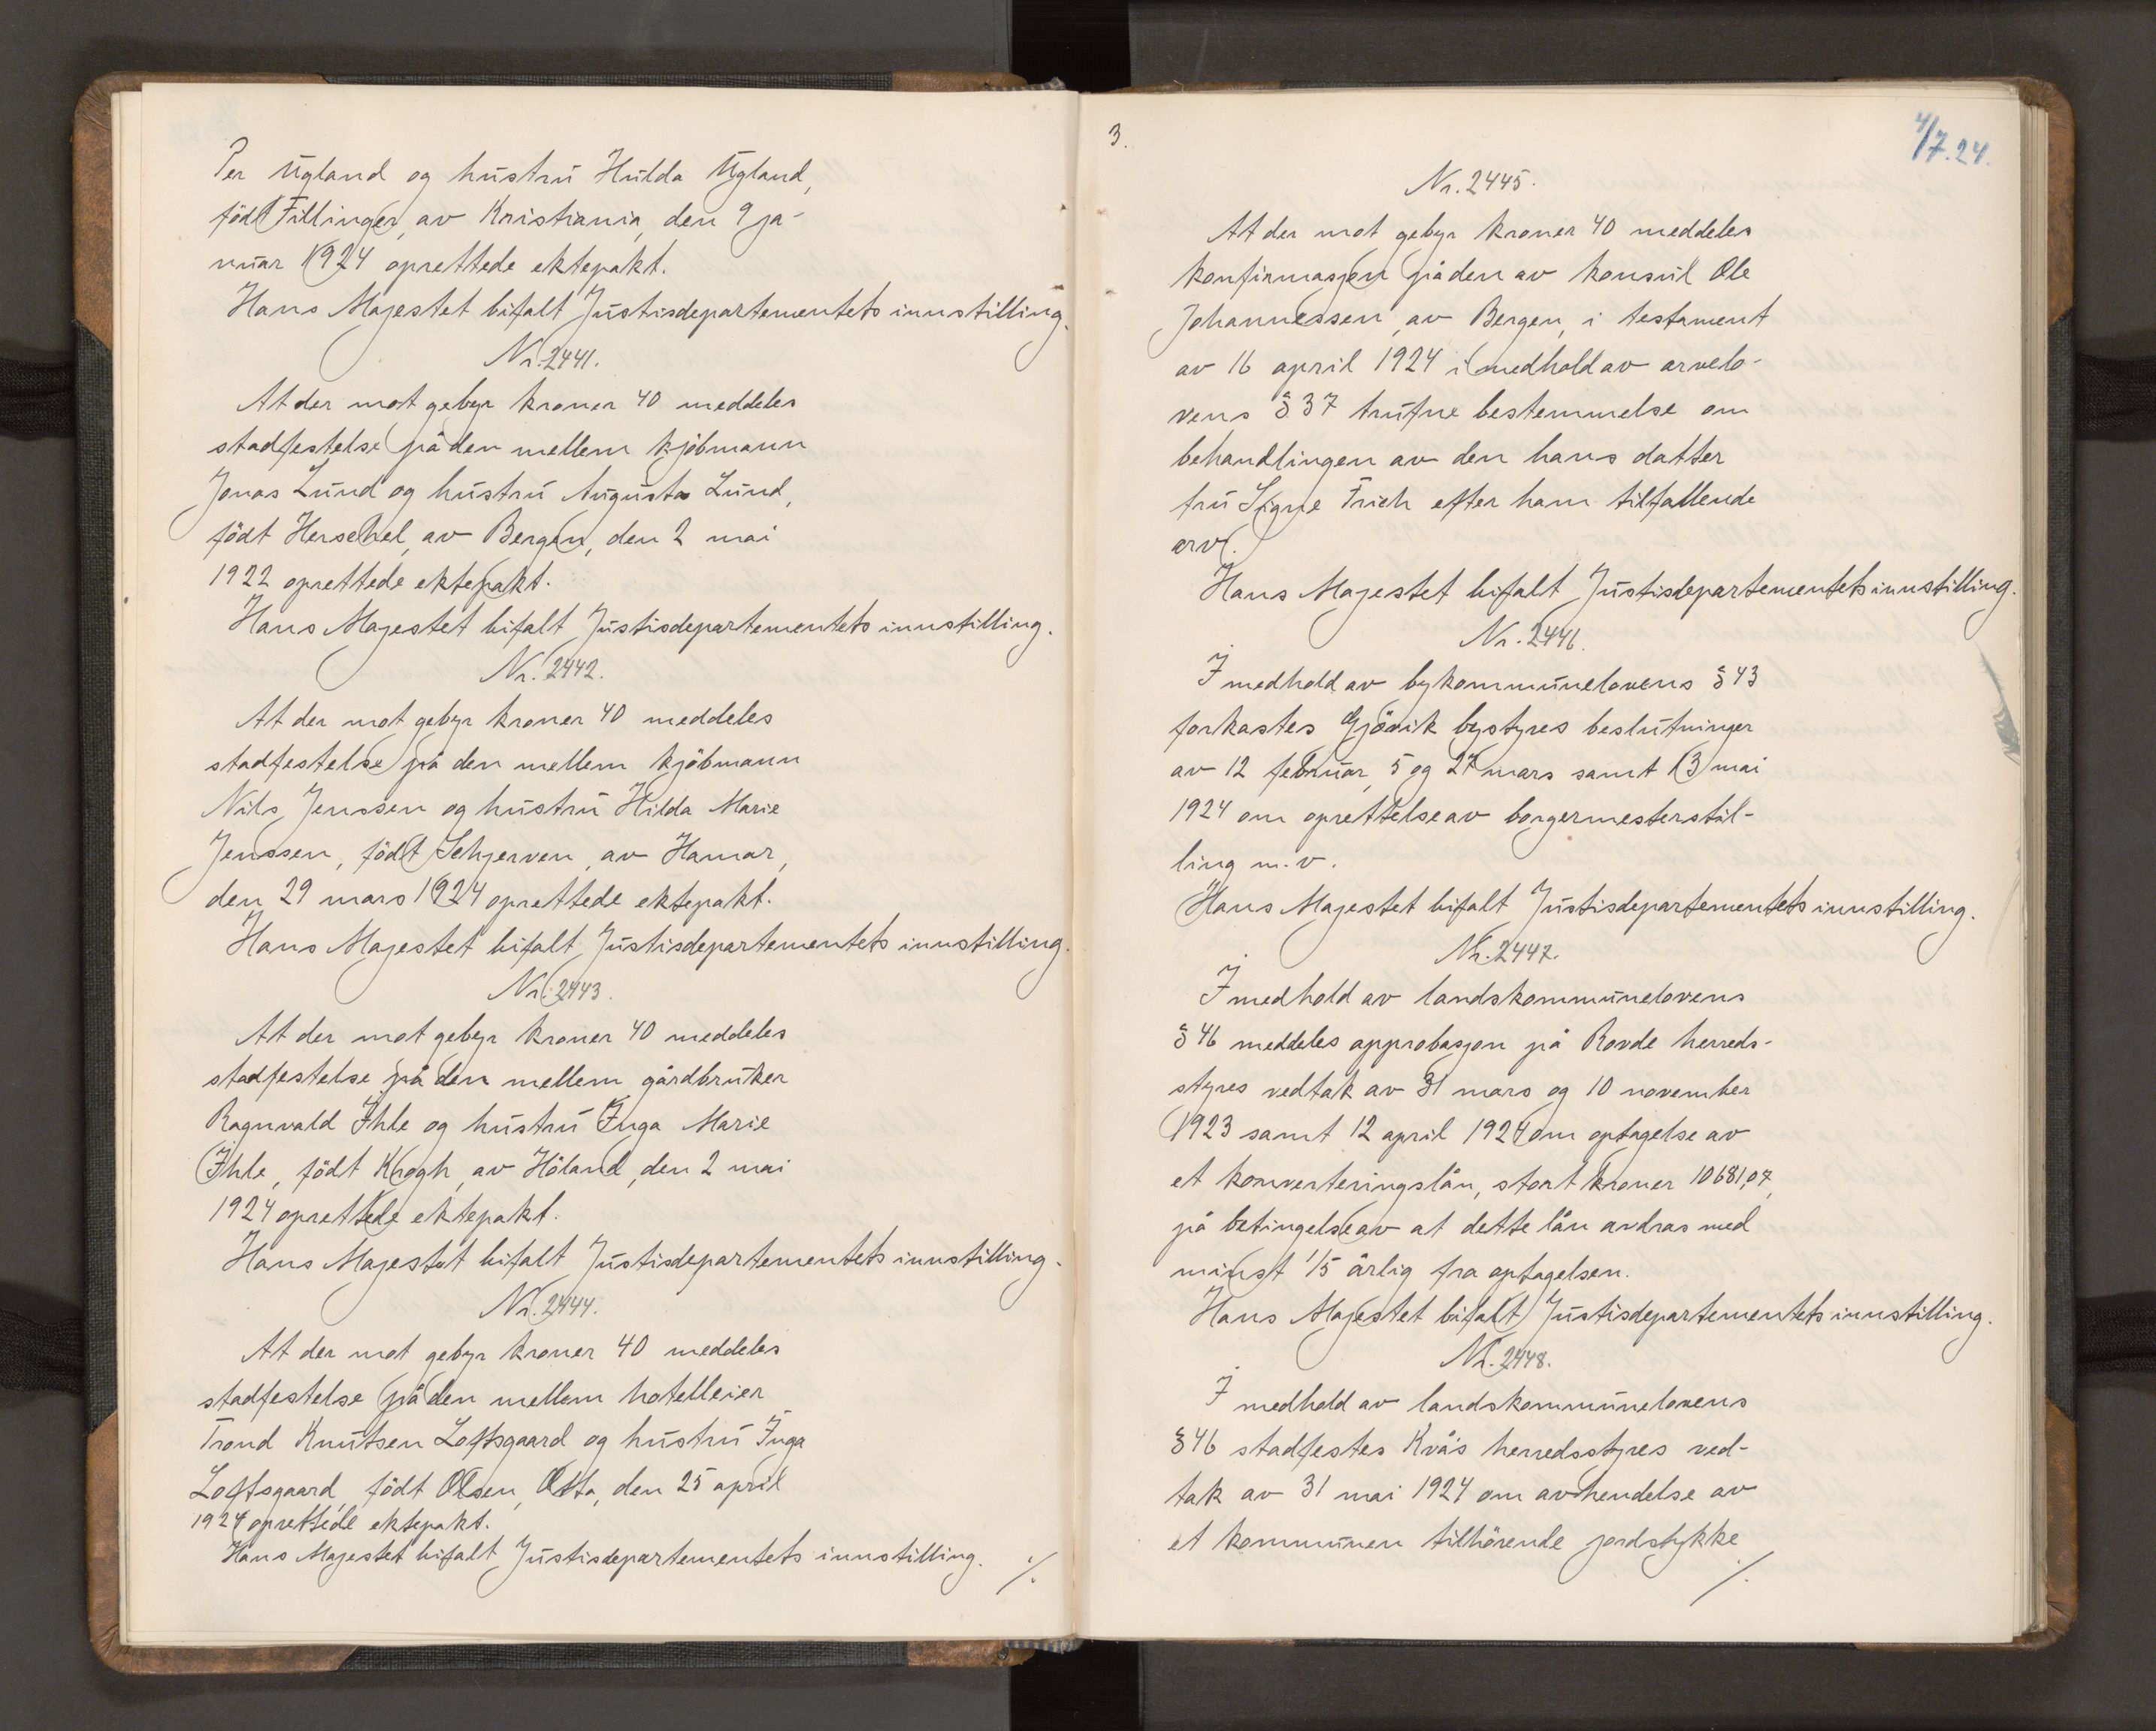 Per Ugland og hustru Hulda Ugland,
födt Fillinger, av Kristiania, den 9 ja-
nuar 1924 oprettede ektepakt.
Hans Majestet bifalt Justisdepartementets innstilling.
Nr. 2441.
At der mot gebyr kroner 40 meddeles
stadfestelse på den mellem kjöbmann
Jonas Lund og hustru Augusta Lund,
födt Herschel, av Bergen, den 2 mai
1922 oprettede ektepakt.
Hans Majestet bifalt Justisdepartementets innstilling.
Nr. 2442.
At der mot gebyr kroner 40 meddeles
stadfestelse på den mellem kjöbmann
Nils Jenssen og hustru Hilda Marie
Jenssen, födt Schjerven, av Hamar,
den 29 mars 1924 oprettede ektepakt.
Hans Majestet bifalt Justisdepartementets innstilling.
Nr. 2443.
At der mot gebyr kroner 40 meddeles
stadfestelse på den mellem gårdbruker
Ragnvald Ihle og hustru Inga Marie
Ihle, födt Krogh, av Höland, den 2 mai
1924 oprettede ektepakt.
Hans Majestet bifalt Justisdepartementets innstilling.
Nr. 2444.
At der mot gebyr kroner 40 meddeles
stadfestelse på den mellem hotelleier
Trond Knutsen Loftsgaard og hustru Inga
Loftsgaard, födt Olsen, Otta, den 25 april
1924 oprettede ektepakt.
Hans Majestet bifalt Justisdepartementets innstilling.
./.
3.
4/7.24.
Nr. 2445.
At der mot gebyr kroner 40 meddeles
konfirmasjon på den av konsul Ole
Johannessen, av Bergen, i testament
av 16 april 1924 i medhold av arvelo-
vens § 37 trufne bestemmelse om
behandlingen av den hans datter
fru Signe Frich efter ham tilfallende
arv.
Hans Majestet bifalt Justisdepartementets innstilling.
Nr. 2446.
I medhold av bykommunelovens § 43
forkastes Gjövik bystyres beslutninger
av 12 februar, 5 og 27 mars samt 13 mai
1924 om oprettelse av borgermesterstil-
ling m.v.
Hans Majestet bifalt Justisdepartementets innstilling.
Nr. 2447.
I medhold av landskommunelovens
§ 46 meddeles approbasjon på Rovde herreds-
styres vedtak av 31 mars og 10 november
1923 samt 12 april 1924 om optagelse av
et konverteringslån, stort kroner 10681,07,
på betingelse av at dette lån avdras med
minst 1/5 årlig fra optagelsen.
Hans Majestet bifalt Justisdepartementets innstilling.
Nr. 2448.
I medhold av landskommunelovens
§ 46 stadfestes Kvås herredsstyres ved-
tak av 31 mai 1924 om avhendelse av
et kommunen tilhörende jordstykke
./.